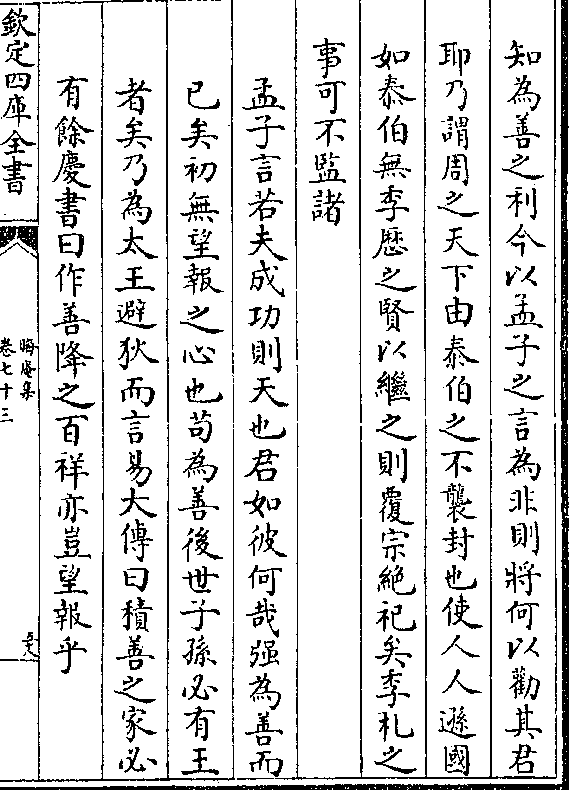 知為善之利今以孟子之言為非則將何以勸其君
耶乃謂周之天下由泰伯之不襲封也使人人遜國
如泰伯無季歷之賢以繼之則覆宗絶祀矣季札之
事可不監諸
孟子言若夫成功則天也君如彼何哉强為善而
已矣初無望報之心也苟為善後世子孫必有王
者矣乃為太王避狄而言易大傳曰積善之家必
有餘慶書曰作善降之百祥亦豈望報乎
欽定四庫全書
晦庵集
卷七十三